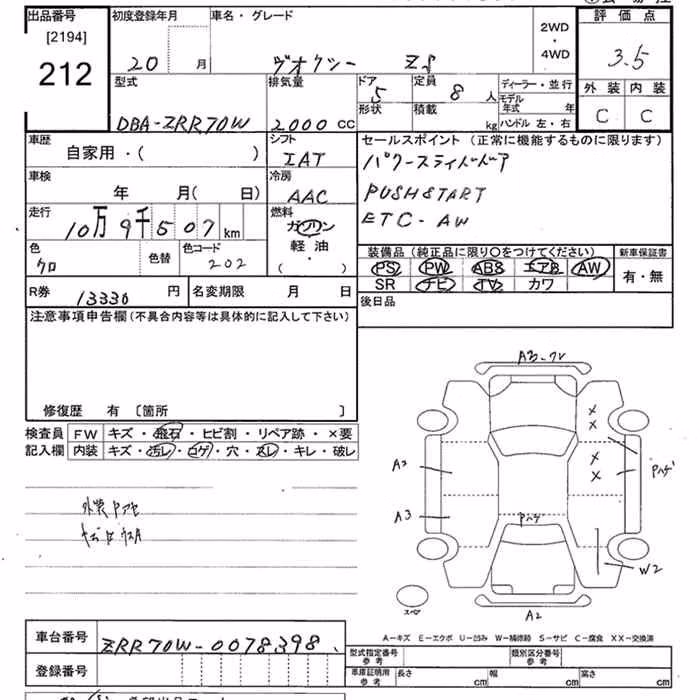 出品番号 初度登録年月 車名・グレード 2WD・4WD 評価点
[2194] 212 20 月 ヴォクシー ZS 3.5
型式 排気量 ドア 定員 ディーラー・並行 外装 内装
DBA-ZRR70W 2000 CC 5 8 人 モデル年式 年 C C
形状 積載 kg ハンドル 左・右
車歴 シフト セールスポイント (正常に機能するものに限ります)
自家用・( ) IAT パワースライドドア
車検 冷房 PUSHSTART
年 月( 日) AAC ETC-AW
走行 燃料
10万9千507 km ガソリン
色 色替 色コード 軽油 装備品 (純正品に限り〇をつけてください) 新車保証書
クロ 202 ・( ) PS PW ABS エアB AW 有・無
SR ナビ TV カワ
R券 13330 円 名変期限 月 日 後日品
注意事項申告欄(不具合内容等は具体的に記入して下さい)
修復歴 有 〔箇所 〕
検査員 FW キズ・飛石・ヒビ割・リペア跡・×要
記入欄 内装 キズ・汚レ・コゲ・穴・スレ・キレ・破レ
外装Pアセ
A3
X
X
X
X
Pハゲ
A3
A3
Pハゲ
W2
スペア
A2
A-キズ E-エクボ U-凹み W-補修跡 S-サビ C-腐食 XX-交換済
車台番号 ZRR70W-0078398
登録番号
型式指定番号 参考 類別区分番号 参考
車庫証明用 参考 長さ cm 幅 cm 高さ cm